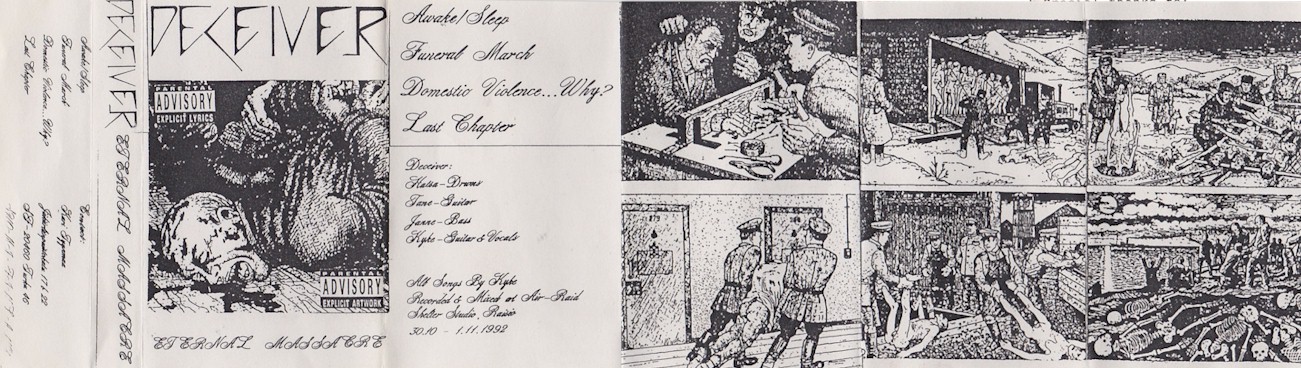 Awake/Sleep
Funeral March
Domestic Violence...Why?
Last Chapter
DECEIVER
ETERNAL MASSACRE
DECEIVER
PARENTAL
ADVISORY
EXPLICIT LYRICS
PARENTAL
ADVISORY
EXPLICIT ARTWORK
ETERNAL MASSACRE
Awake/Sleep
Funeral March
Domestic Violence...Why?
Last Chapter
Deceiver:
Hatsa-Drums
Jane-Guitar
Janne-Bass
Kyke-Guitar & Vocals
All Songs By Kyke
Recorded & Mixed at Air-Raid
Shelter Studio, Raisio
30.10 - 1.11.1992